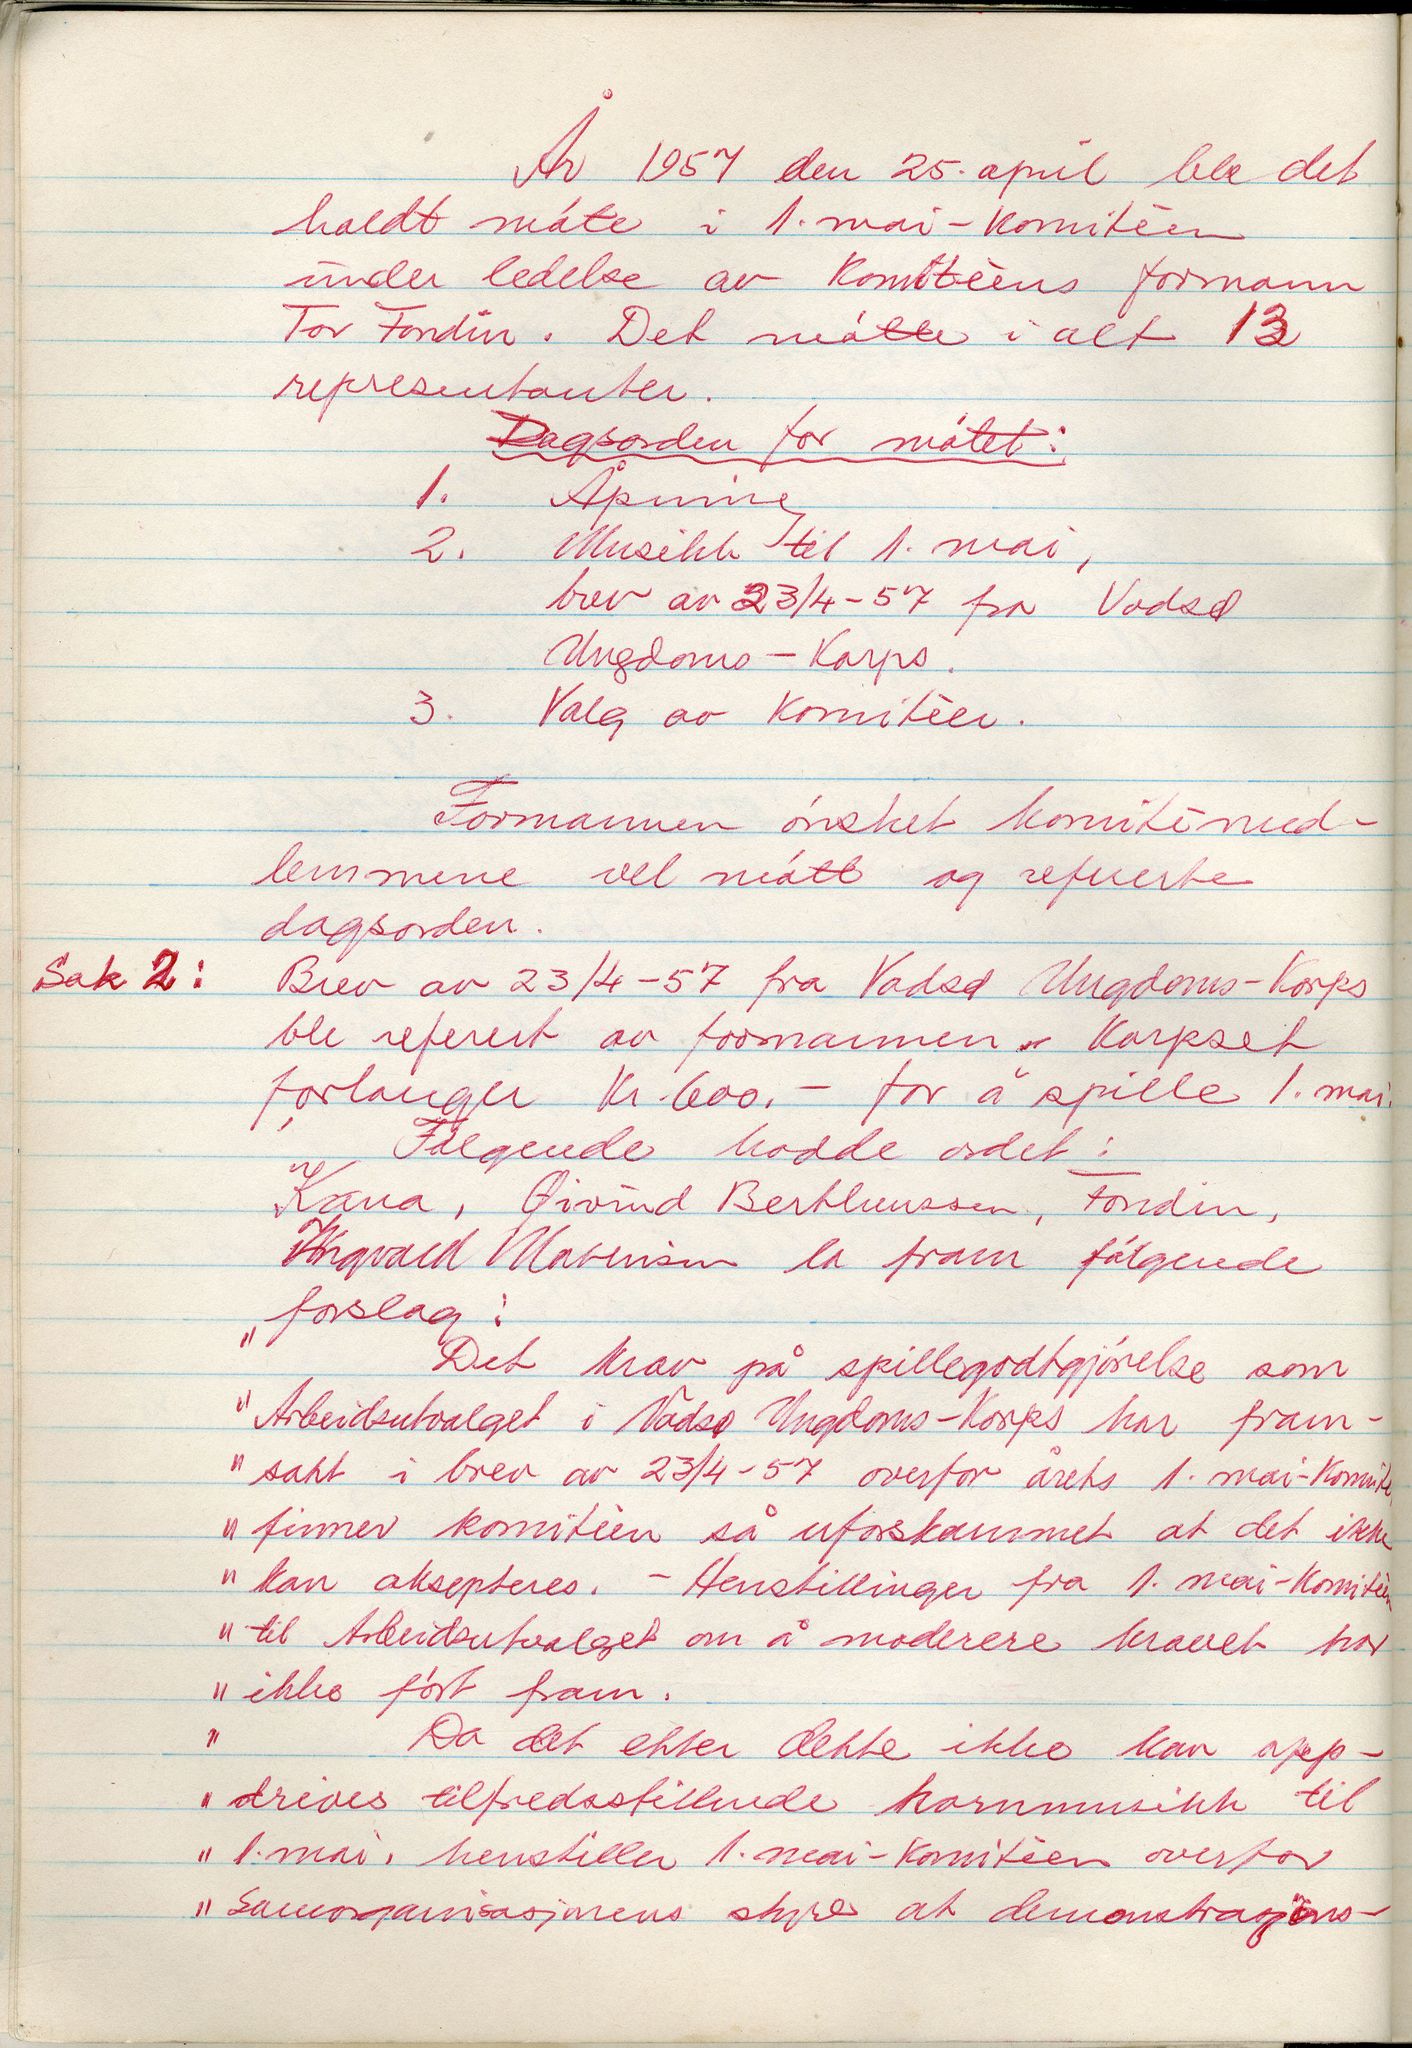 År 1957 den 25. april ble det
holdt móte i 1. mai-Komitèen
under ledelse av Komitèens formann
Tor Fondin. Det mótte i alt 13
representanter.
Dagsorden for mótet:
1. Åpning
2. Musikk til 1. mai,
brev av 23/4-57 fra Vadsø
Ungdoms-Korps.
3. Valg av Komitèer.
Formannen ónsket komitèmed-
lemmene vel mótt og refererte
dagsorden.
Sak 2: Brev av 23/4-57 fra Vadsø Ungdoms-Korps
ble referert av formannen. Korpset
forlanger Kr. 600.- for å spille 1. mai.
Fólgende hadde ordet:
Kana, Øivind Bertheussen, Fondin,
Ingvald Mathisen la fram fólgende
forslag:
" Det krav på spillegodtgjórelse som
" Arbeidsutvalget i Vadsø Ungdoms-Korps har fram-
" satt i brev av 23/4-57 overfor årets 1. mai-Komite,
" finner komitèen så uforskammet at det ikke
" kan aksepteres. - Henstillinger fra 1. mai-Komitèen
" til Arbeidsutvalget om å moderere kravet har
" ikke fórt fram.
" Da det etter dette ikke kan opp-
" drives tilfredsstillende hornmusikk til
" 1. mai, henstiller 1. mai-Komitèen overfor
" Samorganisasjonens styre at demonstrasjons-